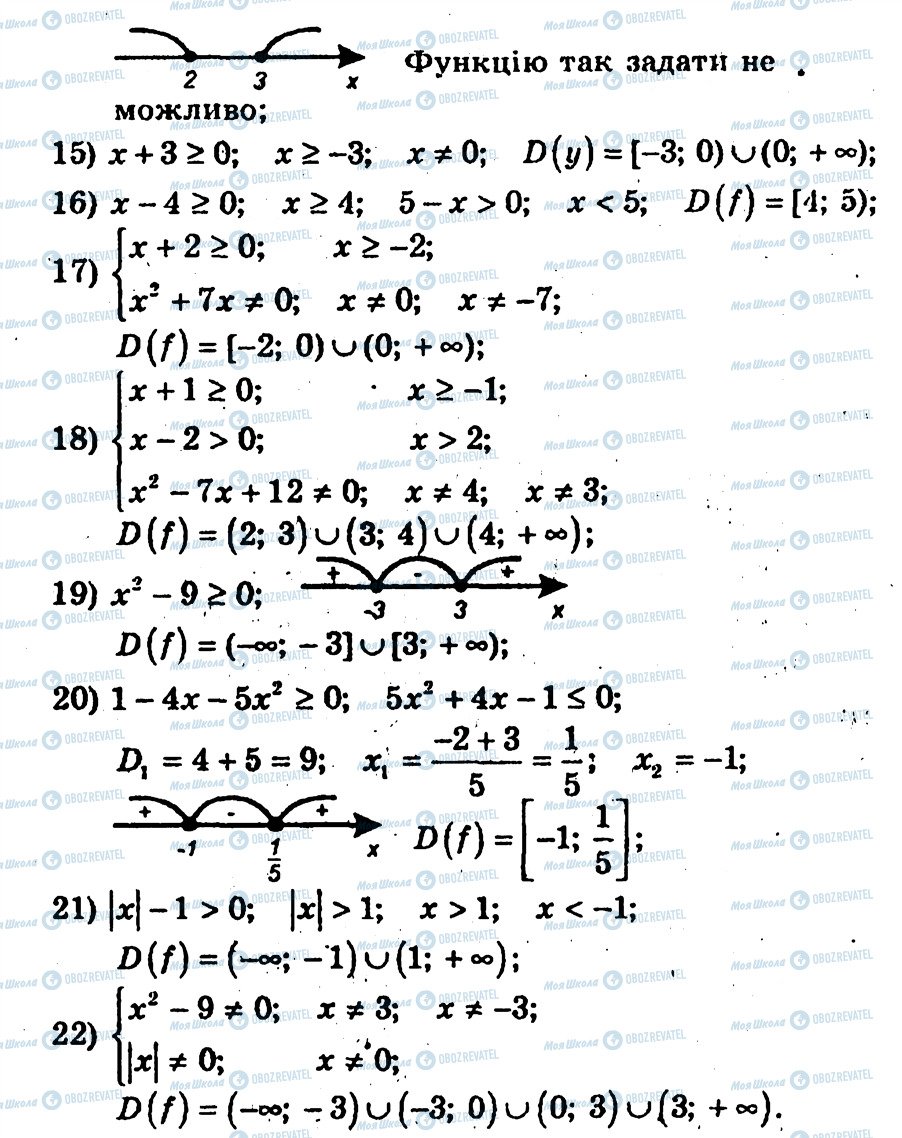 2 3 x Функцію так задати не
можливо;
15) x + 3 ≥ 0; x ≥ −3; x ≠ 0; D(y) = [−3; 0) ∪ (0; + ∞);
16) x − 4 ≥ 0; x ≥ 4; 5 − x > 0; x < 5; D(f) = [4; 5);
17) { x + 2 ≥ 0; x ≥ −2;
x² + 7x ≠ 0; x ≠ 0; x ≠ −7;
D(f) = [−2; 0) ∪ (0; + ∞);
18) { x + 1 ≥ 0; x ≥ −1;
x − 2 > 0; x > 2;
x² − 7x + 12 ≠ 0; x ≠ 4; x ≠ 3;
D(f) = (2; 3) ∪ (3; 4) ∪ (4; + ∞);
19) x² − 9 ≥ 0; + - + -3 3 x
D(f) = (−∞; − 3] ∪ [3; + ∞);
20) 1 − 4x − 5x² ≥ 0; 5x² + 4x − 1 ≤ 0;
D₁ = 4 + 5 = 9; x₁ = (−2 + 3)/5 = 1/5; x₂ = −1;
+ - + -1 1/5 x D(f) = [−1; 1/5];
21) |x| − 1 > 0; |x| > 1; x > 1; x < −1;
D(f) = (−∞; − 1) ∪ (1; + ∞);
22) { x² − 9 ≠ 0; x ≠ 3; x ≠ −3;
|x| ≠ 0; x ≠ 0;
D(f) = (−∞; − 3) ∪ (−3; 0) ∪ (0; 3) ∪ (3; + ∞).
Моя Школа OBOZREVATEL